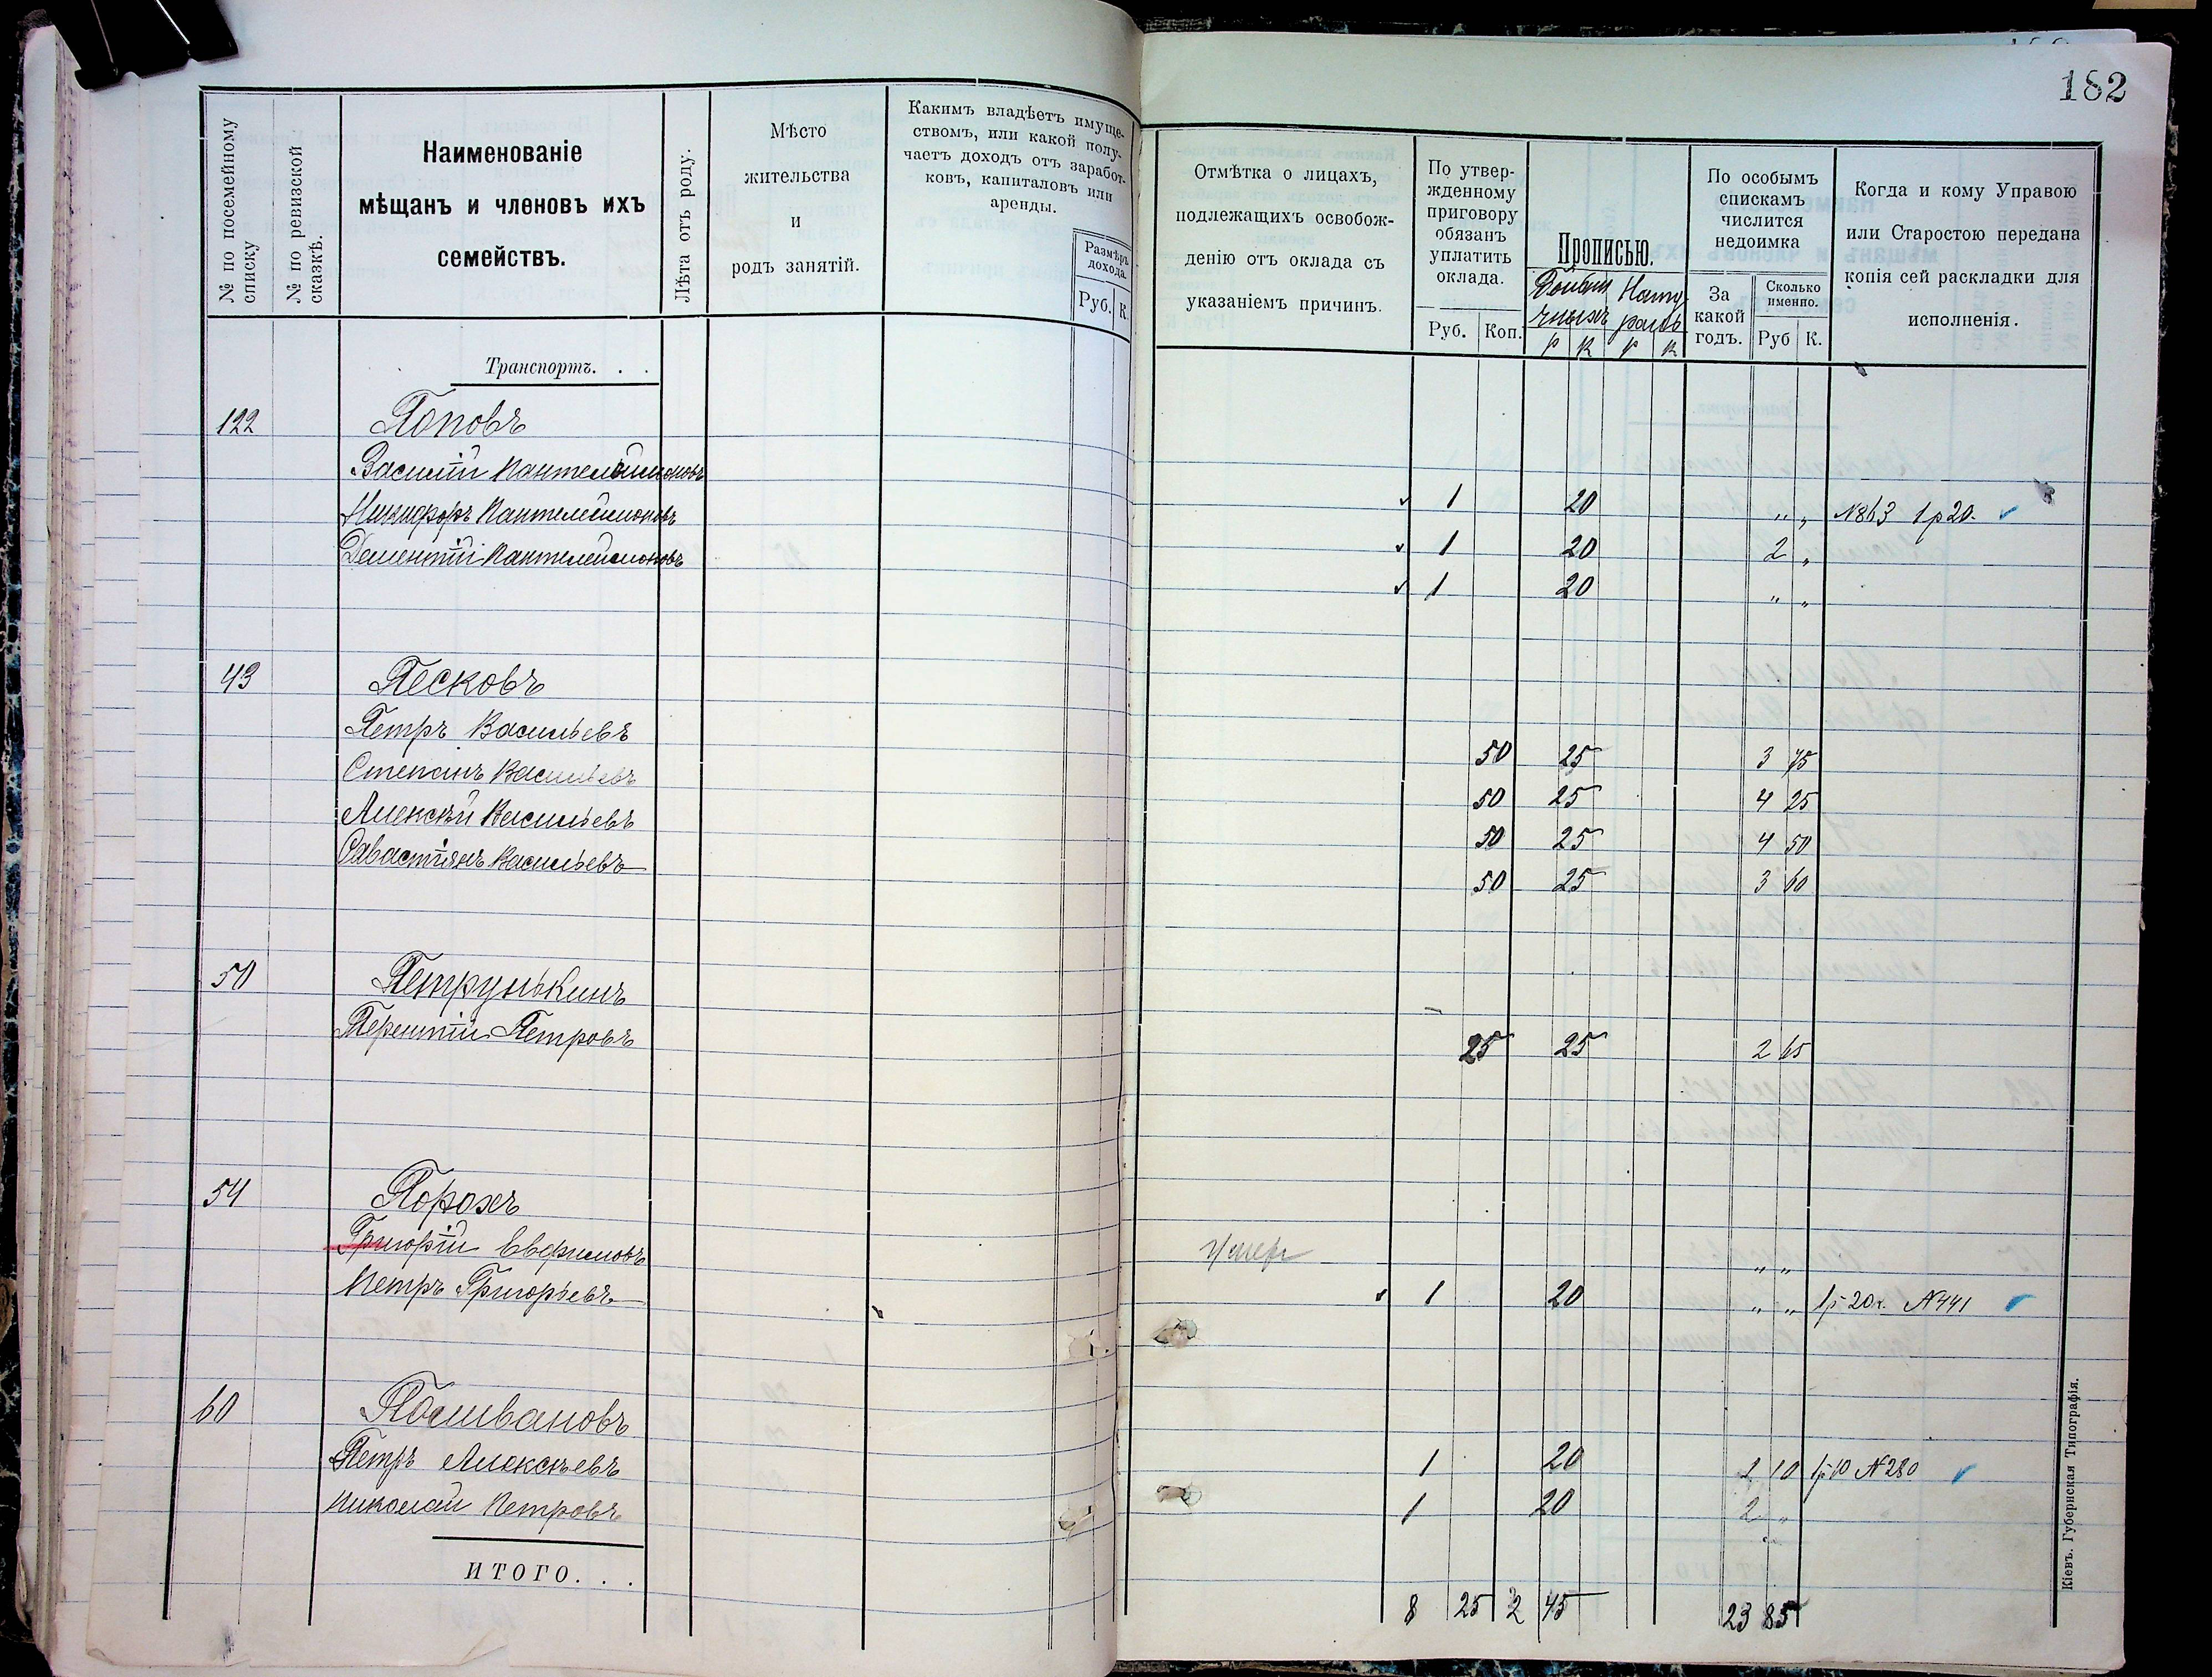 182
№ по посемейному списку
№ по ревизской сказкѣ.
Наименованіе
мѣщанъ и членовъ ихъ
семействъ.
Лѣта отъ роду.
Мѣсто
жительства
и
родъ занятій.
Какимъ владѣетъ имуще-
ствомъ, или какой полу-
чаетъ доходъ отъ заработ-
ковъ, капиталовъ или
аренды.
Размѣръ
дохода.
Руб. К.
Отмѣтка о лицахъ,
подлежащихъ освобож-
денію отъ оклада съ
указаніемъ причинъ.
По утвер-
жденному
приговору
обязанъ
уплатить
оклада.
Руб. Коп.
Прописью.
р к р к
По особымъ
спискамъ
числится
недоимка
За
какой
годъ.
Сколько
именно.
Руб К.
Когда и кому Управою
или Старостою передана
копія сей раскладки для
исполненія.
Транспортъ. . .
122 Поповъ
Василій Пантелеймоновъ 1 20 „ „ №863 1р20.
Никифоръ Пантелеймоновъ 1 20 2 „
Дементій Пантелеймоновъ 1 20 „ „
43 Песковъ
Петръ Васильевъ 50 25 3 75
Степанъ Васильевъ 50 25 4 25
Алексѣй Васильевъ 50 25 4 50
Савастіянъ Васильевъ 50 25 3 60
50 Петрунькинъ
Терентій Петровъ 25 25 2 65
54 Порохъ
Григорій Евфимовъ Умеръ „ „
Петръ Григорьевъ 1 20 „ „ 1р 20к. №441
60 Поливановъ
Петръ Алексѣевъ 1 20 10 1р10 №280
Николай Петровъ 1 20 2 „
ИТОГО. . .
8 25 2 45 23 85
Кіевъ. Губернская Типографія.